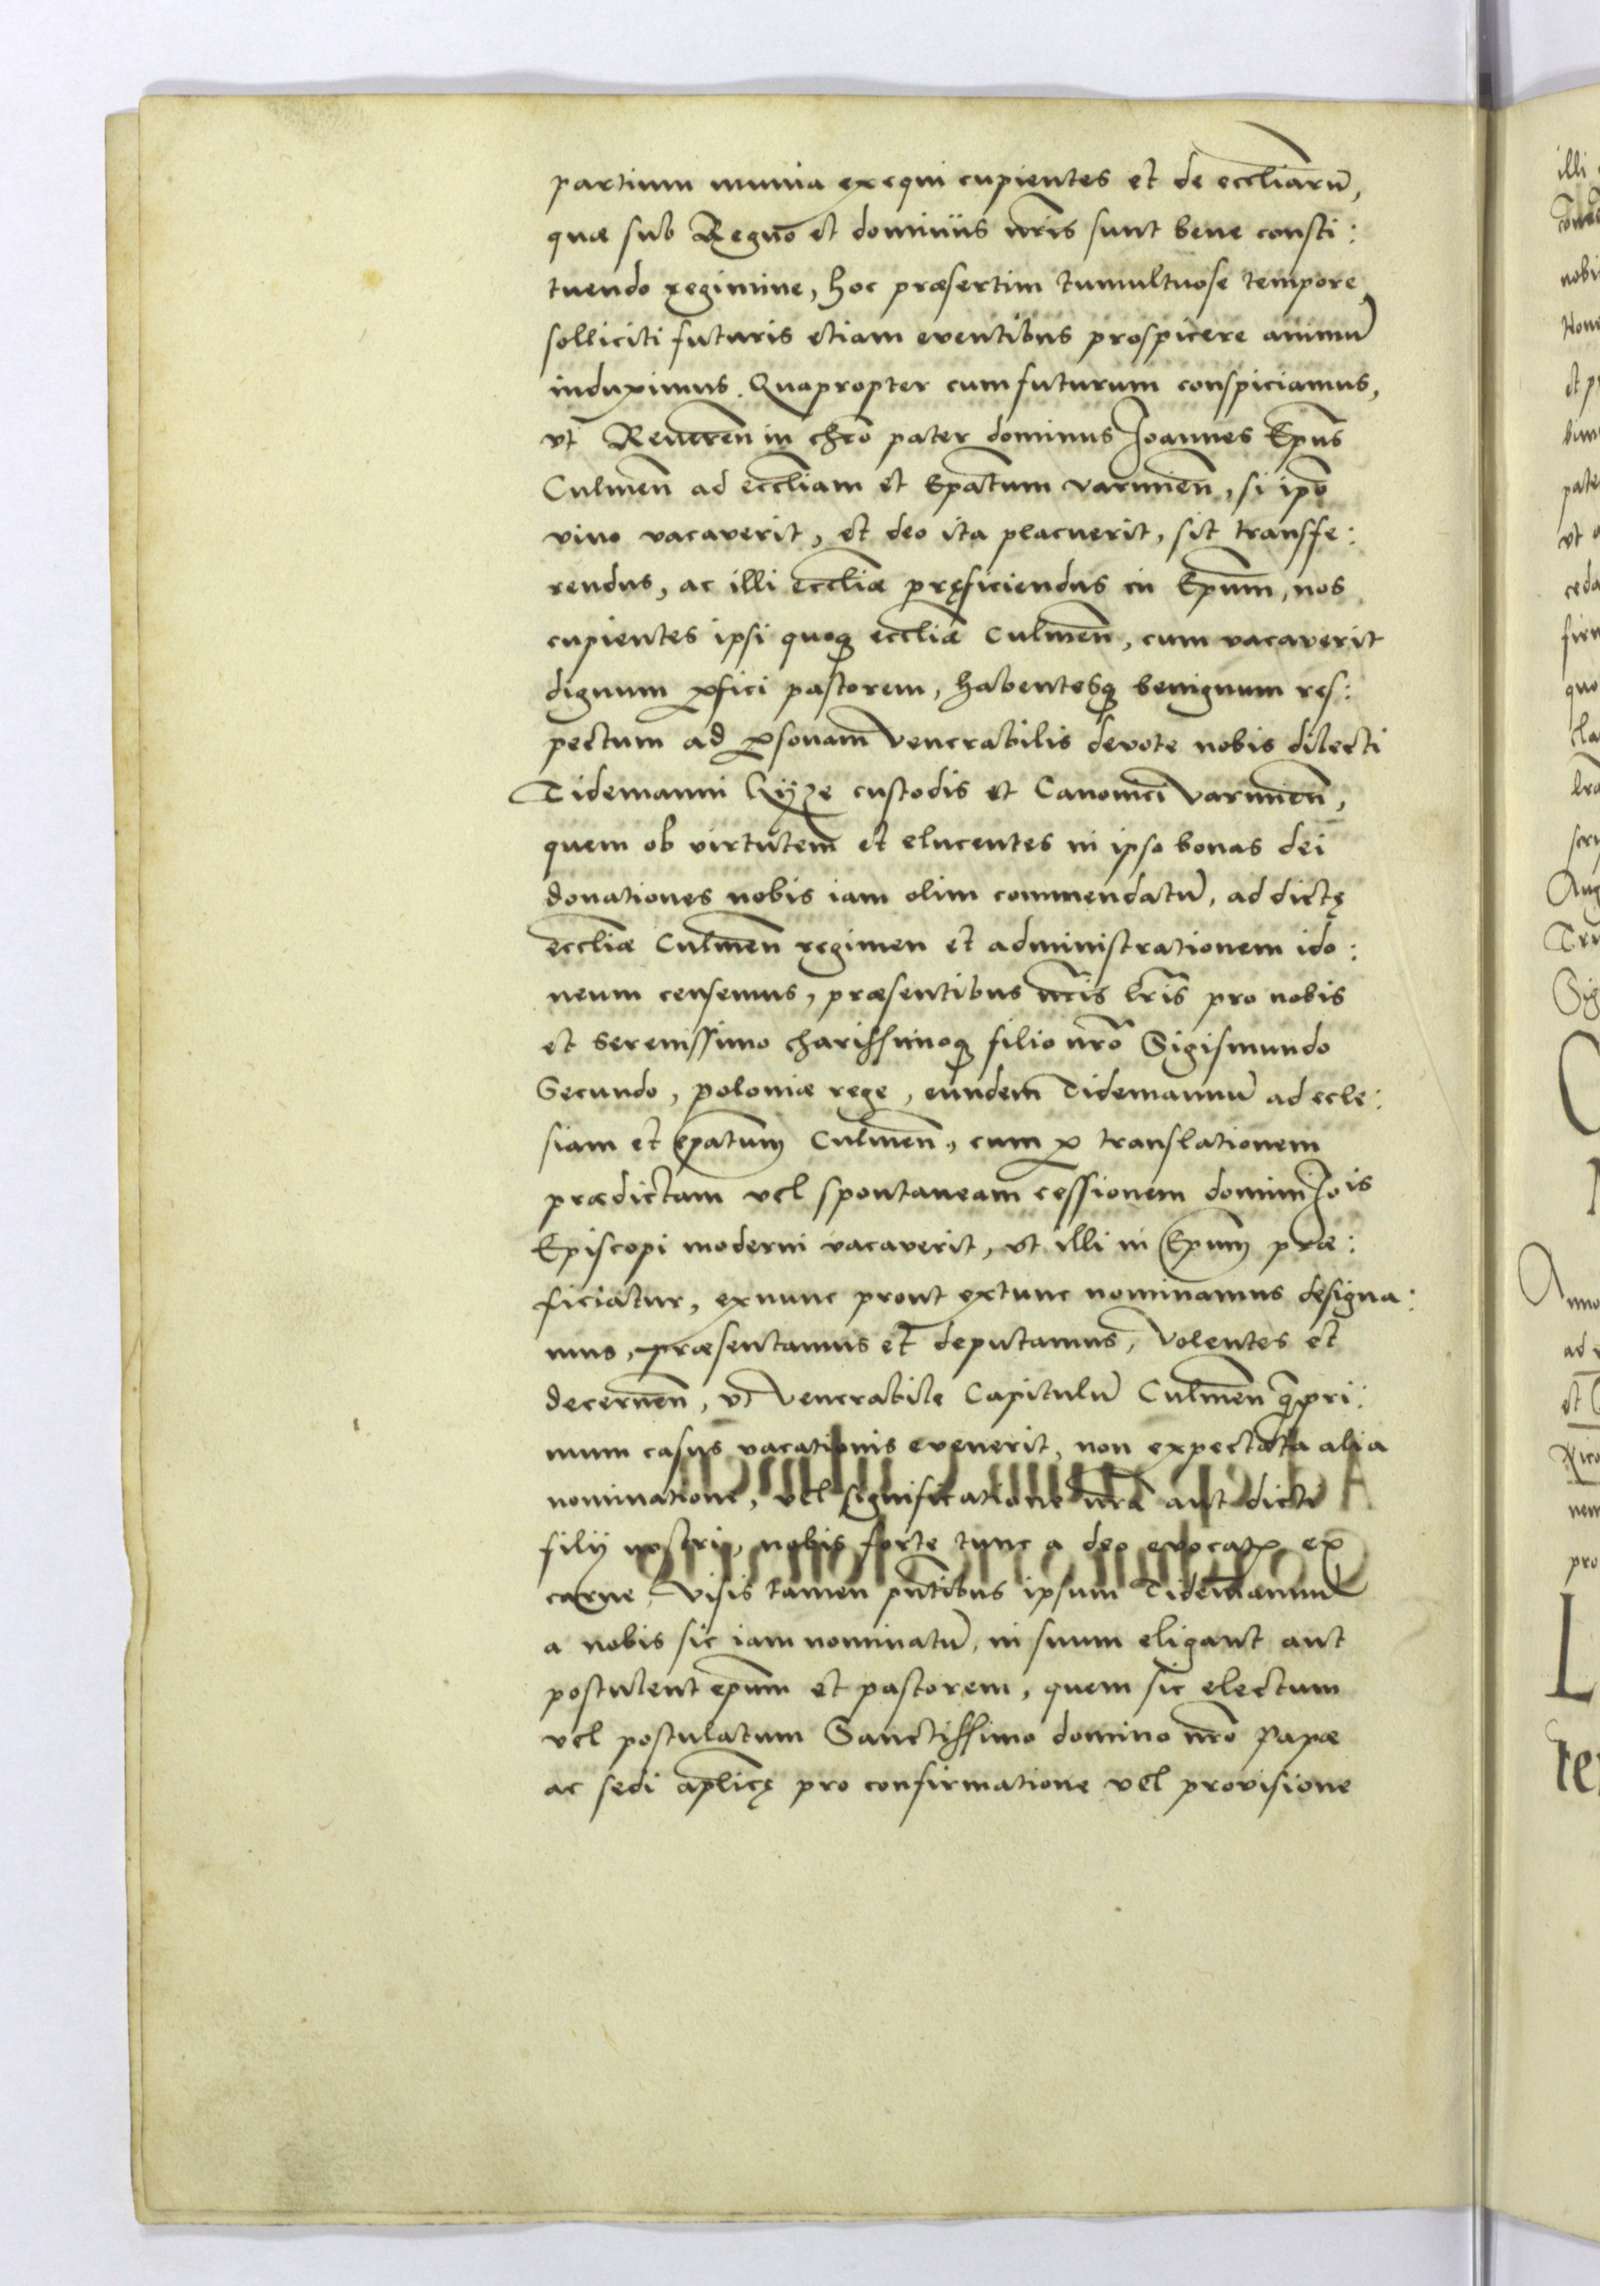 partium munia exequi cupientes et de eccliarũ,
quæ sub Regno et dominiis nr̃is sunt bene consti:
tuendo regimine, hoc præsertim tumultuose tempore
solliciti futuris etiam eventibus prospicere animũ
induximus. Quapropter cum futurum conspiciamus,
vt Reveren̄ in chrō pater dominus Joannes Epūs
Culmen̄ ad eccl̄iam et Epātum varmien̄, si ipō
vivo vacaverit, et deo ita placuerit, sit transfe:
rendus, ac illi eccl̄iæ pręficiendus in Epūm, nos
cupientes ipsi quoq̨ eccl̄iæ Culmen̄, cum vacaverit
dignum p̄fici pastorem, habentesq̨ benignum res:
pectum ad ꝑsonam venerabilis devote nobis dilecti
Tidemanni Gyze custodis et Canonici varmien̄,
quem ob virtutem et elucentes in ipso bonas dei
donationes nobis iam olim commendatũ, ad dictę
eccl̄iæ Culmen̄ regimen et administrationem ido:
neum censemus, præsentibus nr̃is l̃ris pro nobis
et serenissimo charissimoq̨ filio nr̃o Sigismundo
Secundo, poloniæ rege, eundem Tidemannũ ad eccle:
siam et epātum Culmen̄, cum ꝑ translationem
prædictam vel spontaneam cessionem domini Jois
Episcopi moderni vacaverit, vt illi in Epūm præ:
ficiatur, exnunc prout extunc nominamus designa:
mus, præsentamus et deputamus, volentes et
decernen̄, vt venerabile Capitulũ Culmen̄ q̃pri:
mum casus vacationis evenerit, non expectata alia
nominatione, vel significatione nr̃a aut dicti
filij nostri, nobis forte tunc a deo evocatꝭ ex
carne, visis tamen pn̄tibus ipsum Tidemannũ
a nobis sic iam nominatũ, in suum eligant aut
postulent epūm et pastorem, quem sic electum
vel postulatum Sanctissimo domino nr̃o Papæ
ac sedi apl̄icę pro confirmatione vel provisione